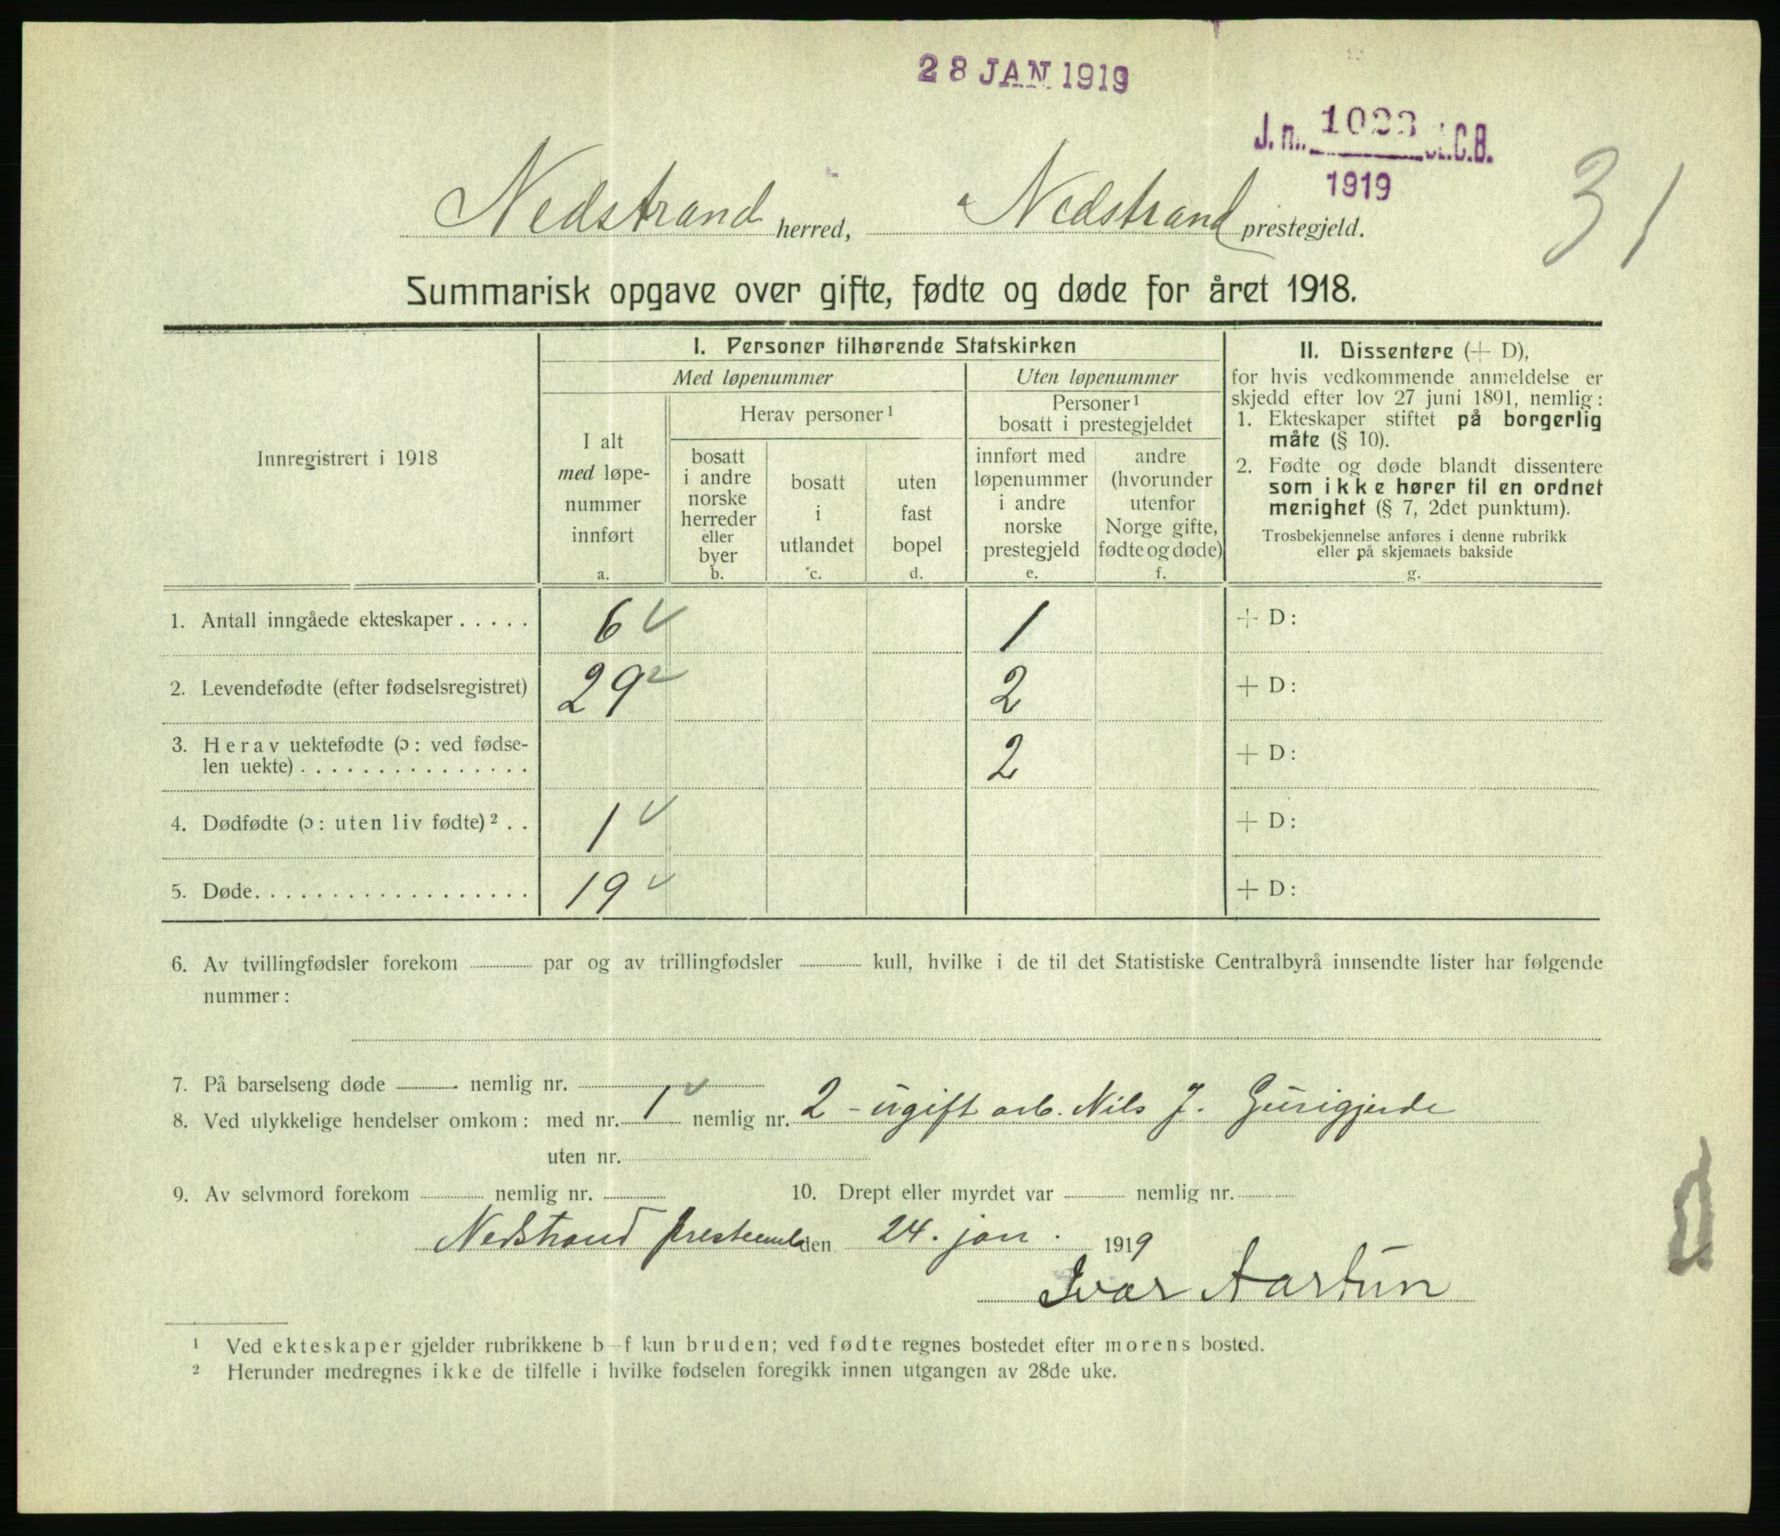 28 JAN 1919
J. n. 1023 St.C.B.
1919
31
Nedstrand herred, Nedstrand prestegjeld.
Summarisk opgave over gifte, fødte og døde for året 1918.
Innregistrert i 1918
I. Personer tilhørende Statskirken
Med løpenummer
Uten løpenummer
I alt
med løpe-
nummer
innført
a.
Herav personer¹
bosatt
i andre
norske
herreder
eller
byer
b.
bosatt
i
utlandet
c.
uten
fast
bopel
d.
Personer¹
bosatt i prestegjeldet
innført med
løpenummer
i andre
norske
prestegjeld
e.
andre
(hvorunder
utenfor
Norge gifte,
fødte og døde)
f.
II. Dissentere (+ D),
for hvis vedkommende anmeldelse er
skjedd efter lov 27 juni 1891, nemlig:
1. Ekteskaper stiftet på borgerlig
måte (§ 10).
2. Fødte og døde blandt dissentere
som ikke hører til en ordnet
menighet (§ 7, 2det punktum).
Trosbekjennelse anføres i denne rubrikk
eller på skjemaets bakside
g.
1. Antall inngåede ekteskaper . . . . . 6 1 + D:
2. Levendefødte (efter fødselsregistret) 29 2 + D:
3. Herav uektefødte (ɔ: ved fødse-
len uekte) . . . . . . . . . . . . . . . 2 + D:
4. Dødfødte (ɔ: uten liv fødte)² . . 1 + D:
5. Døde. . . . . . . . . . . . . . . . . . 19 + D:
6. Av tvillingfødsler forekom par og av trillingfødsler kull, hvilke i de til det Statistiske Centralbyrå innsendte lister har følgende
nummer:
7. På barselseng døde nemlig nr.
8. Ved ulykkelige hendelser omkom: med nr. 1 nemlig nr. 2 - ugift arb. Nils J. Gurigjerde
uten nr.
9. Av selvmord forekom nemlig nr. 10. Drept eller myrdet var nemlig nr.
Nedstrand presteemb den 24. jan. 1919
Ivar Aartun
¹ Ved ekteskaper gjelder rubrikkene b–f kun bruden; ved fødte regnes bostedet efter morens bosted.
² Herunder medregnes ikke de tilfelle i hvilke fødselen foregikk innen utgangen av 28de uke.